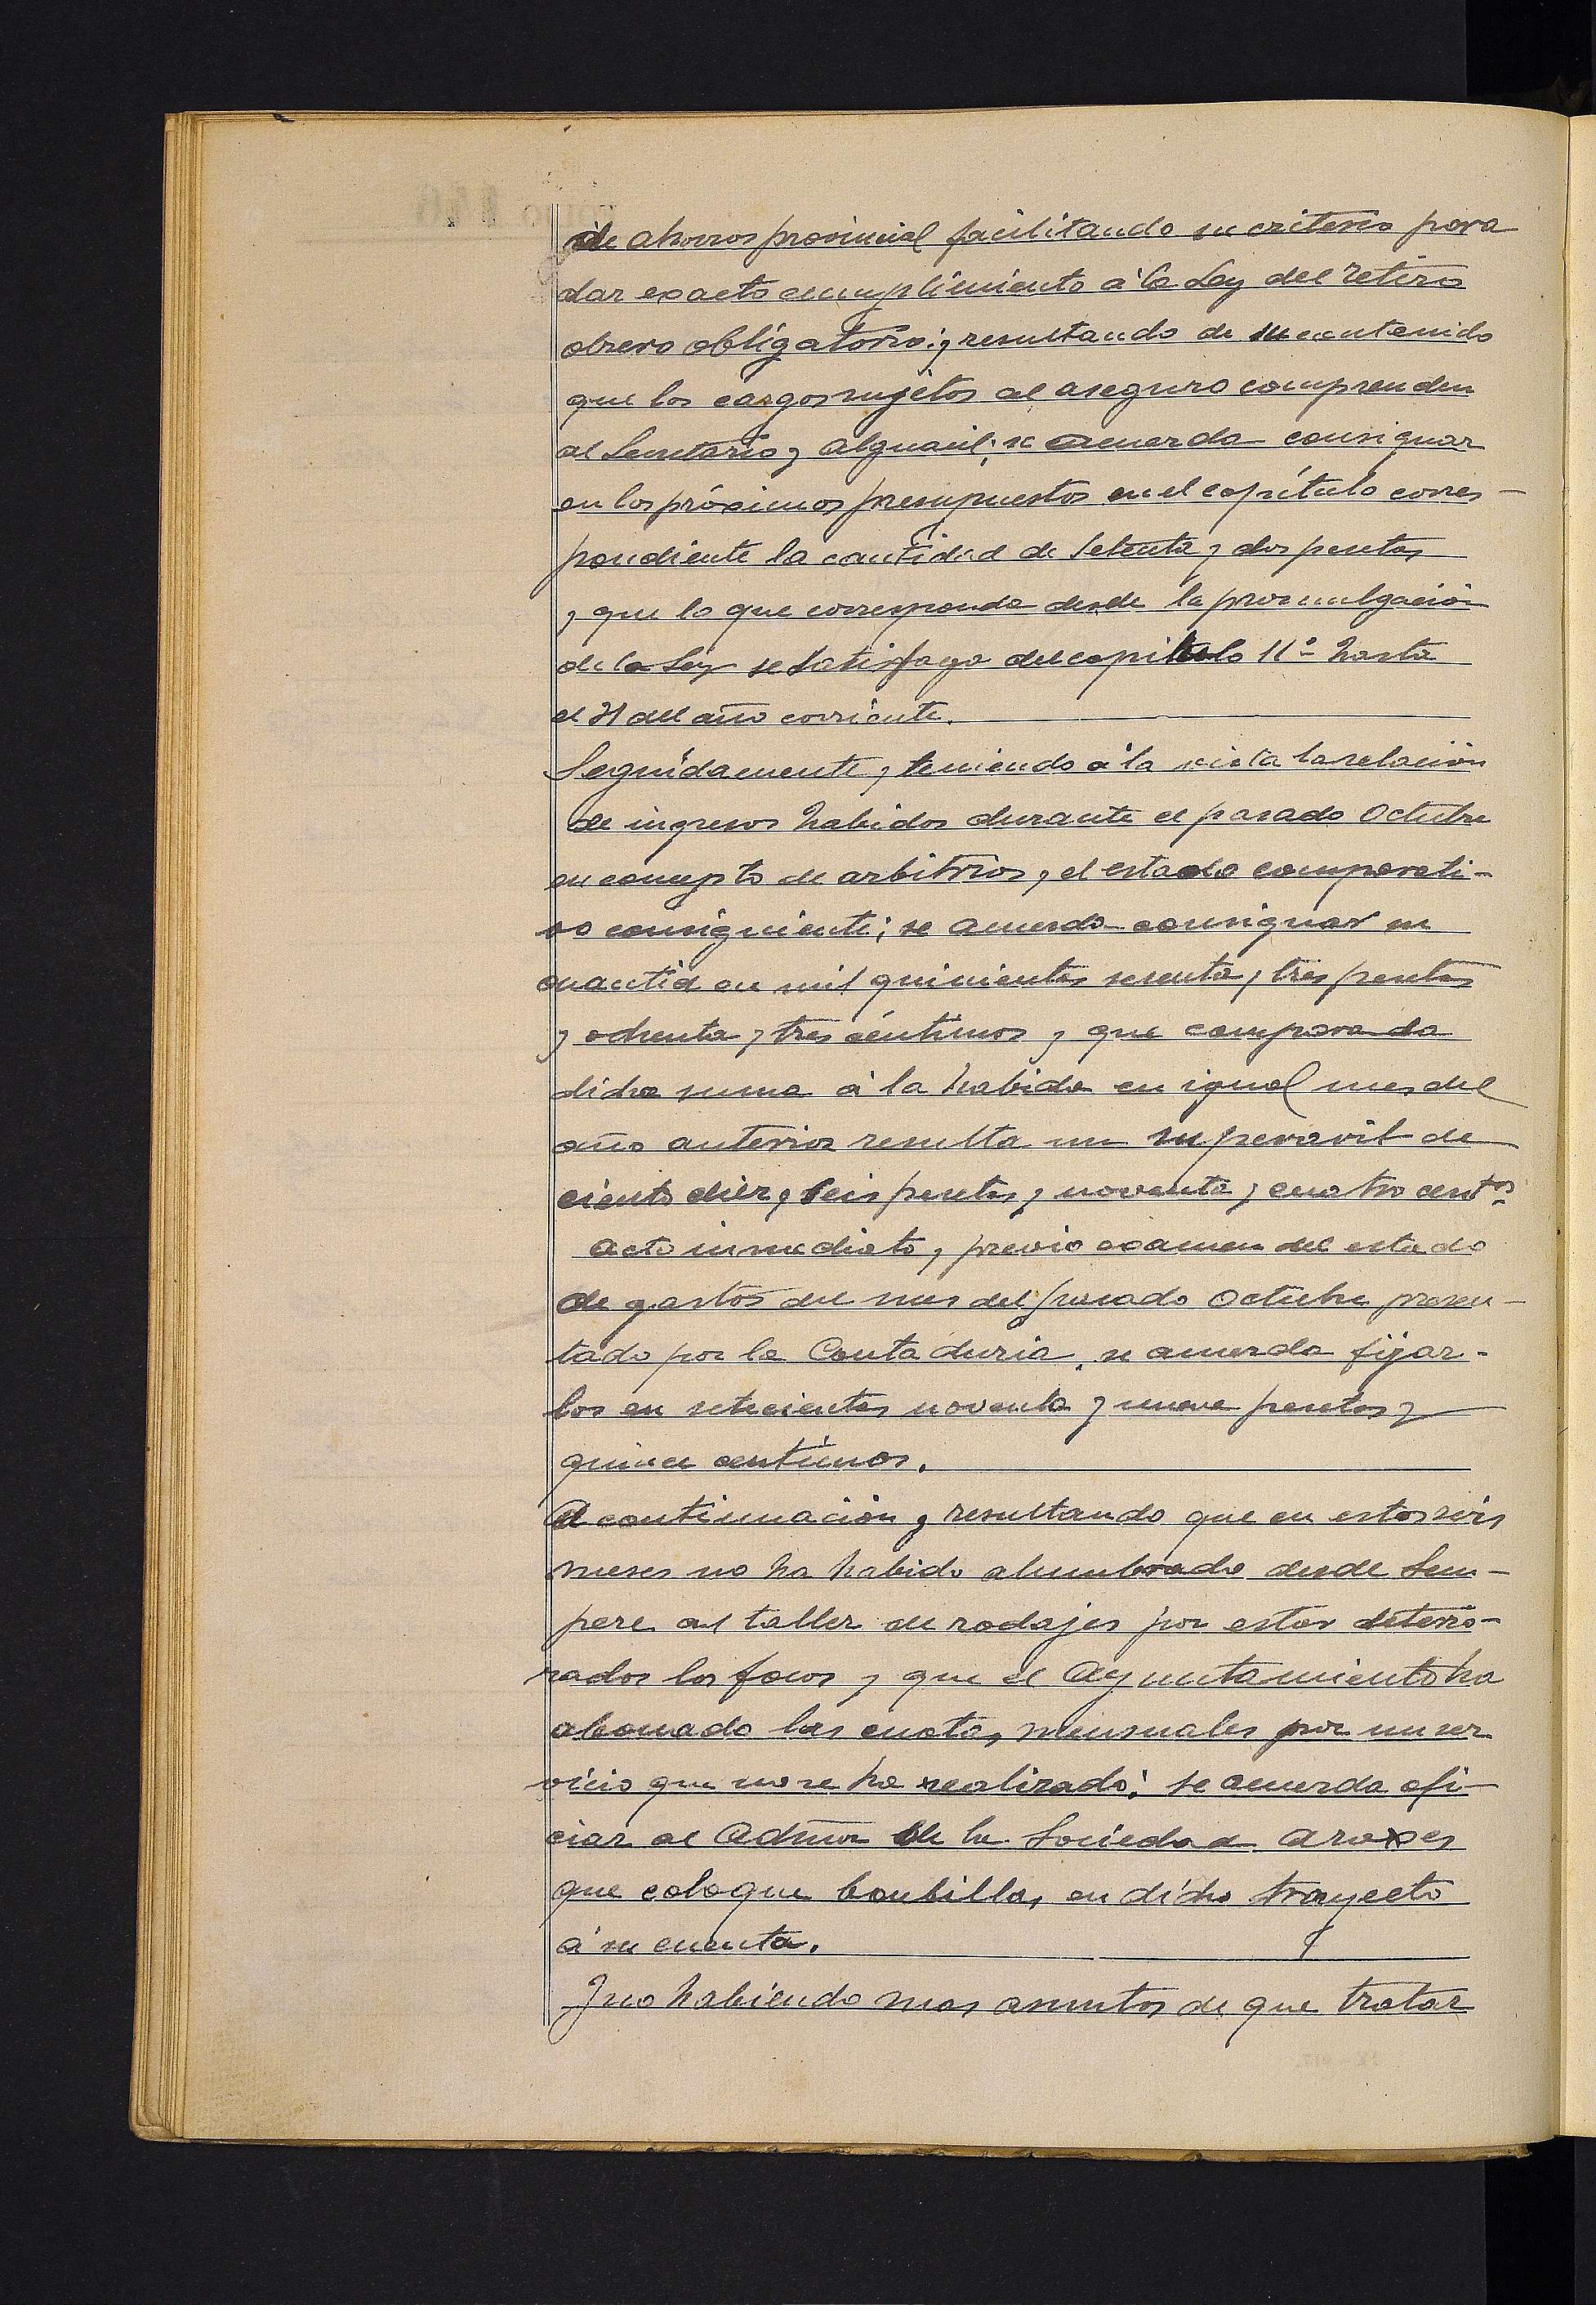 de ahorros provincial facilitando su criterio para
dar exacto cumplimiento á la Ley del retiro
obrero obligatorio: y resultando de su contenido
que los cargos sujetos al aseguro comprenden
al Secretario y alguacil; se acuerda consignar
en los próximos presupuestos en el capítulo corres-
pondiente la cantidad de setenta y dos pesetas
y que lo que corresponda desde la promulgación
de la Ley se satisfaga del capitulo 11º hasta
el 31 del año corriente.
Seguídamente y teniendo á la vista la relación
de ingresos habidos durante el pasado Octubre
en concepto de arbitrios y el estado comparati-
vo consiguiente; se acuerda consignar su
cuantia en mil quinientas sesenta y tres pesetas
y ochenta y tres céntimos y que comparada
dicha suma á la habida en igual mes del
año anterior resulta un superavit de
ciento diez y seis pesetas y noventa y cuatro centos
Acto inmediato, previo examen del estado
de gastos del mes del pasado Octubre presen-
tado por la Contaduria, se acuerda fijar-
los en setecientas noventa y nueve pesetas y
quince centímos.
A continuación y resultando que en estos seis
meses no ha habido alumbrado desde Sem-
pere al taller de rodajes por estar deterio-
rados los focos y que el Ayuntamiento ha
abonado las cuotas mensuales por un ser
vicio que no se ha realizado: se acuerda ofi-
ciar al Admor de la Sociedad Araxes
que coloque bombillas en dicho trayecto
á su cuenta.
Y no habiendo mas asuntos de que tratar